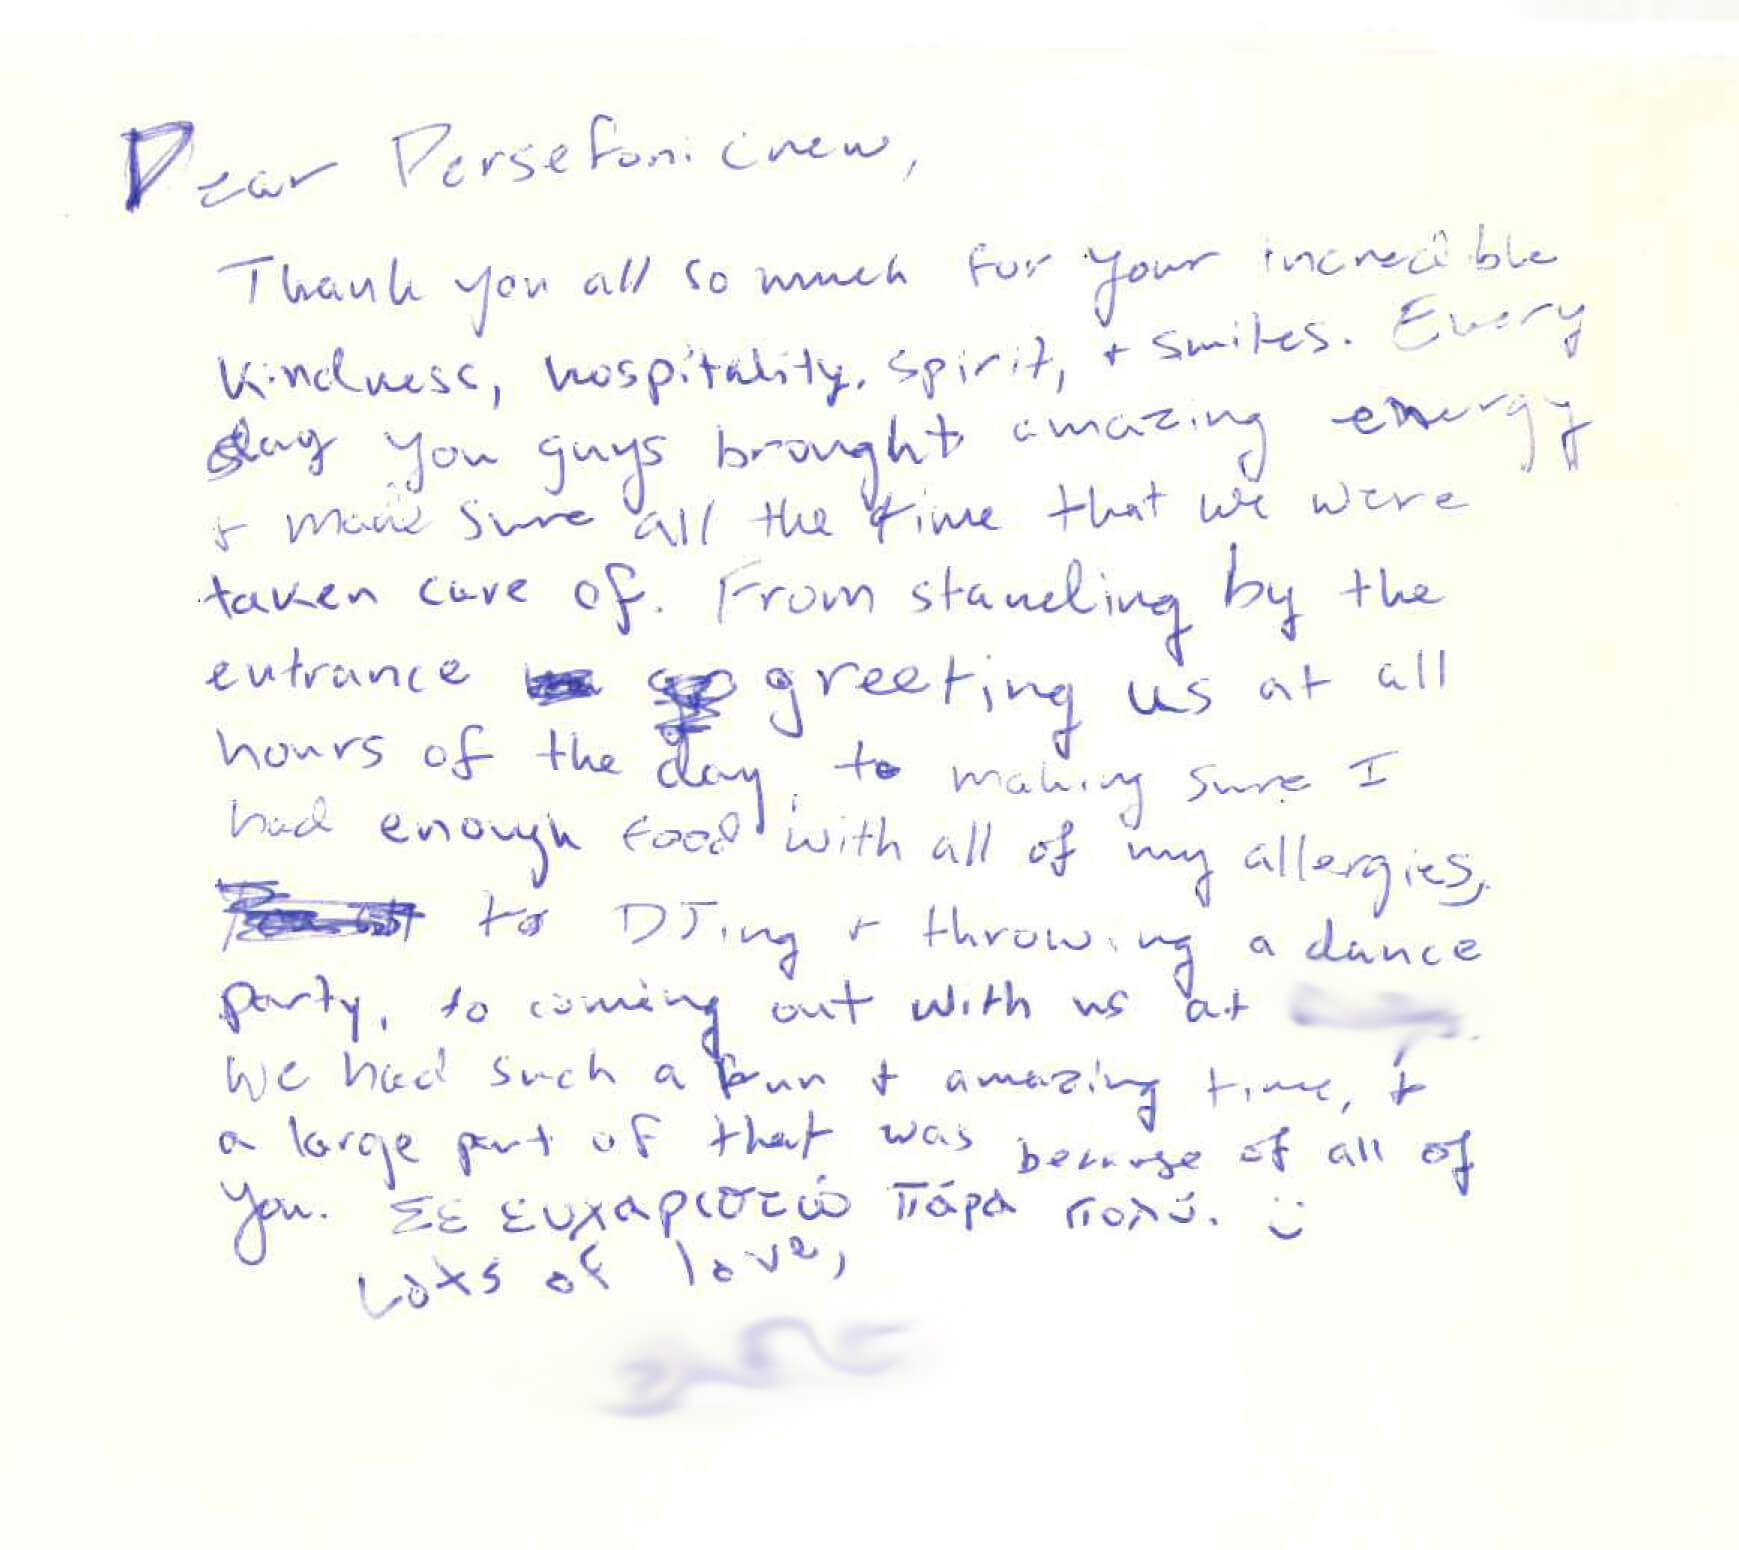 Dear Persefoni crew,
Thank you all so much for your incredible
kindness, hospitality, spirit, + smiles. Every
day you guys brought amazing energy
+ made sure all the time that we were
taken care of. From standing by the
entrance greeting us at all
hours of the day, to making sure I
had enough food with all of my allergies,
to DJing + throwing a dance
party, to coming out with us at
We had such a fun + amazing time, +
a large part of that was because of all of
you. Σε ευχαριστώ πάρα πολύ. :)
Lots of love,